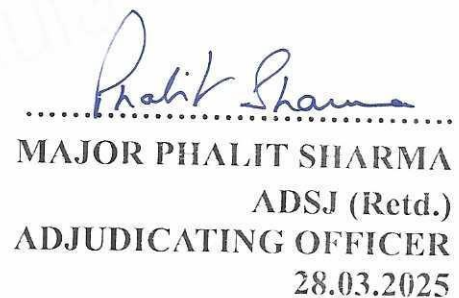 Phalit Sharma
MAJOR PHALIT SHARMA
ADSJ (Retd.)
ADJUDICATING OFFICER
28.03.2025